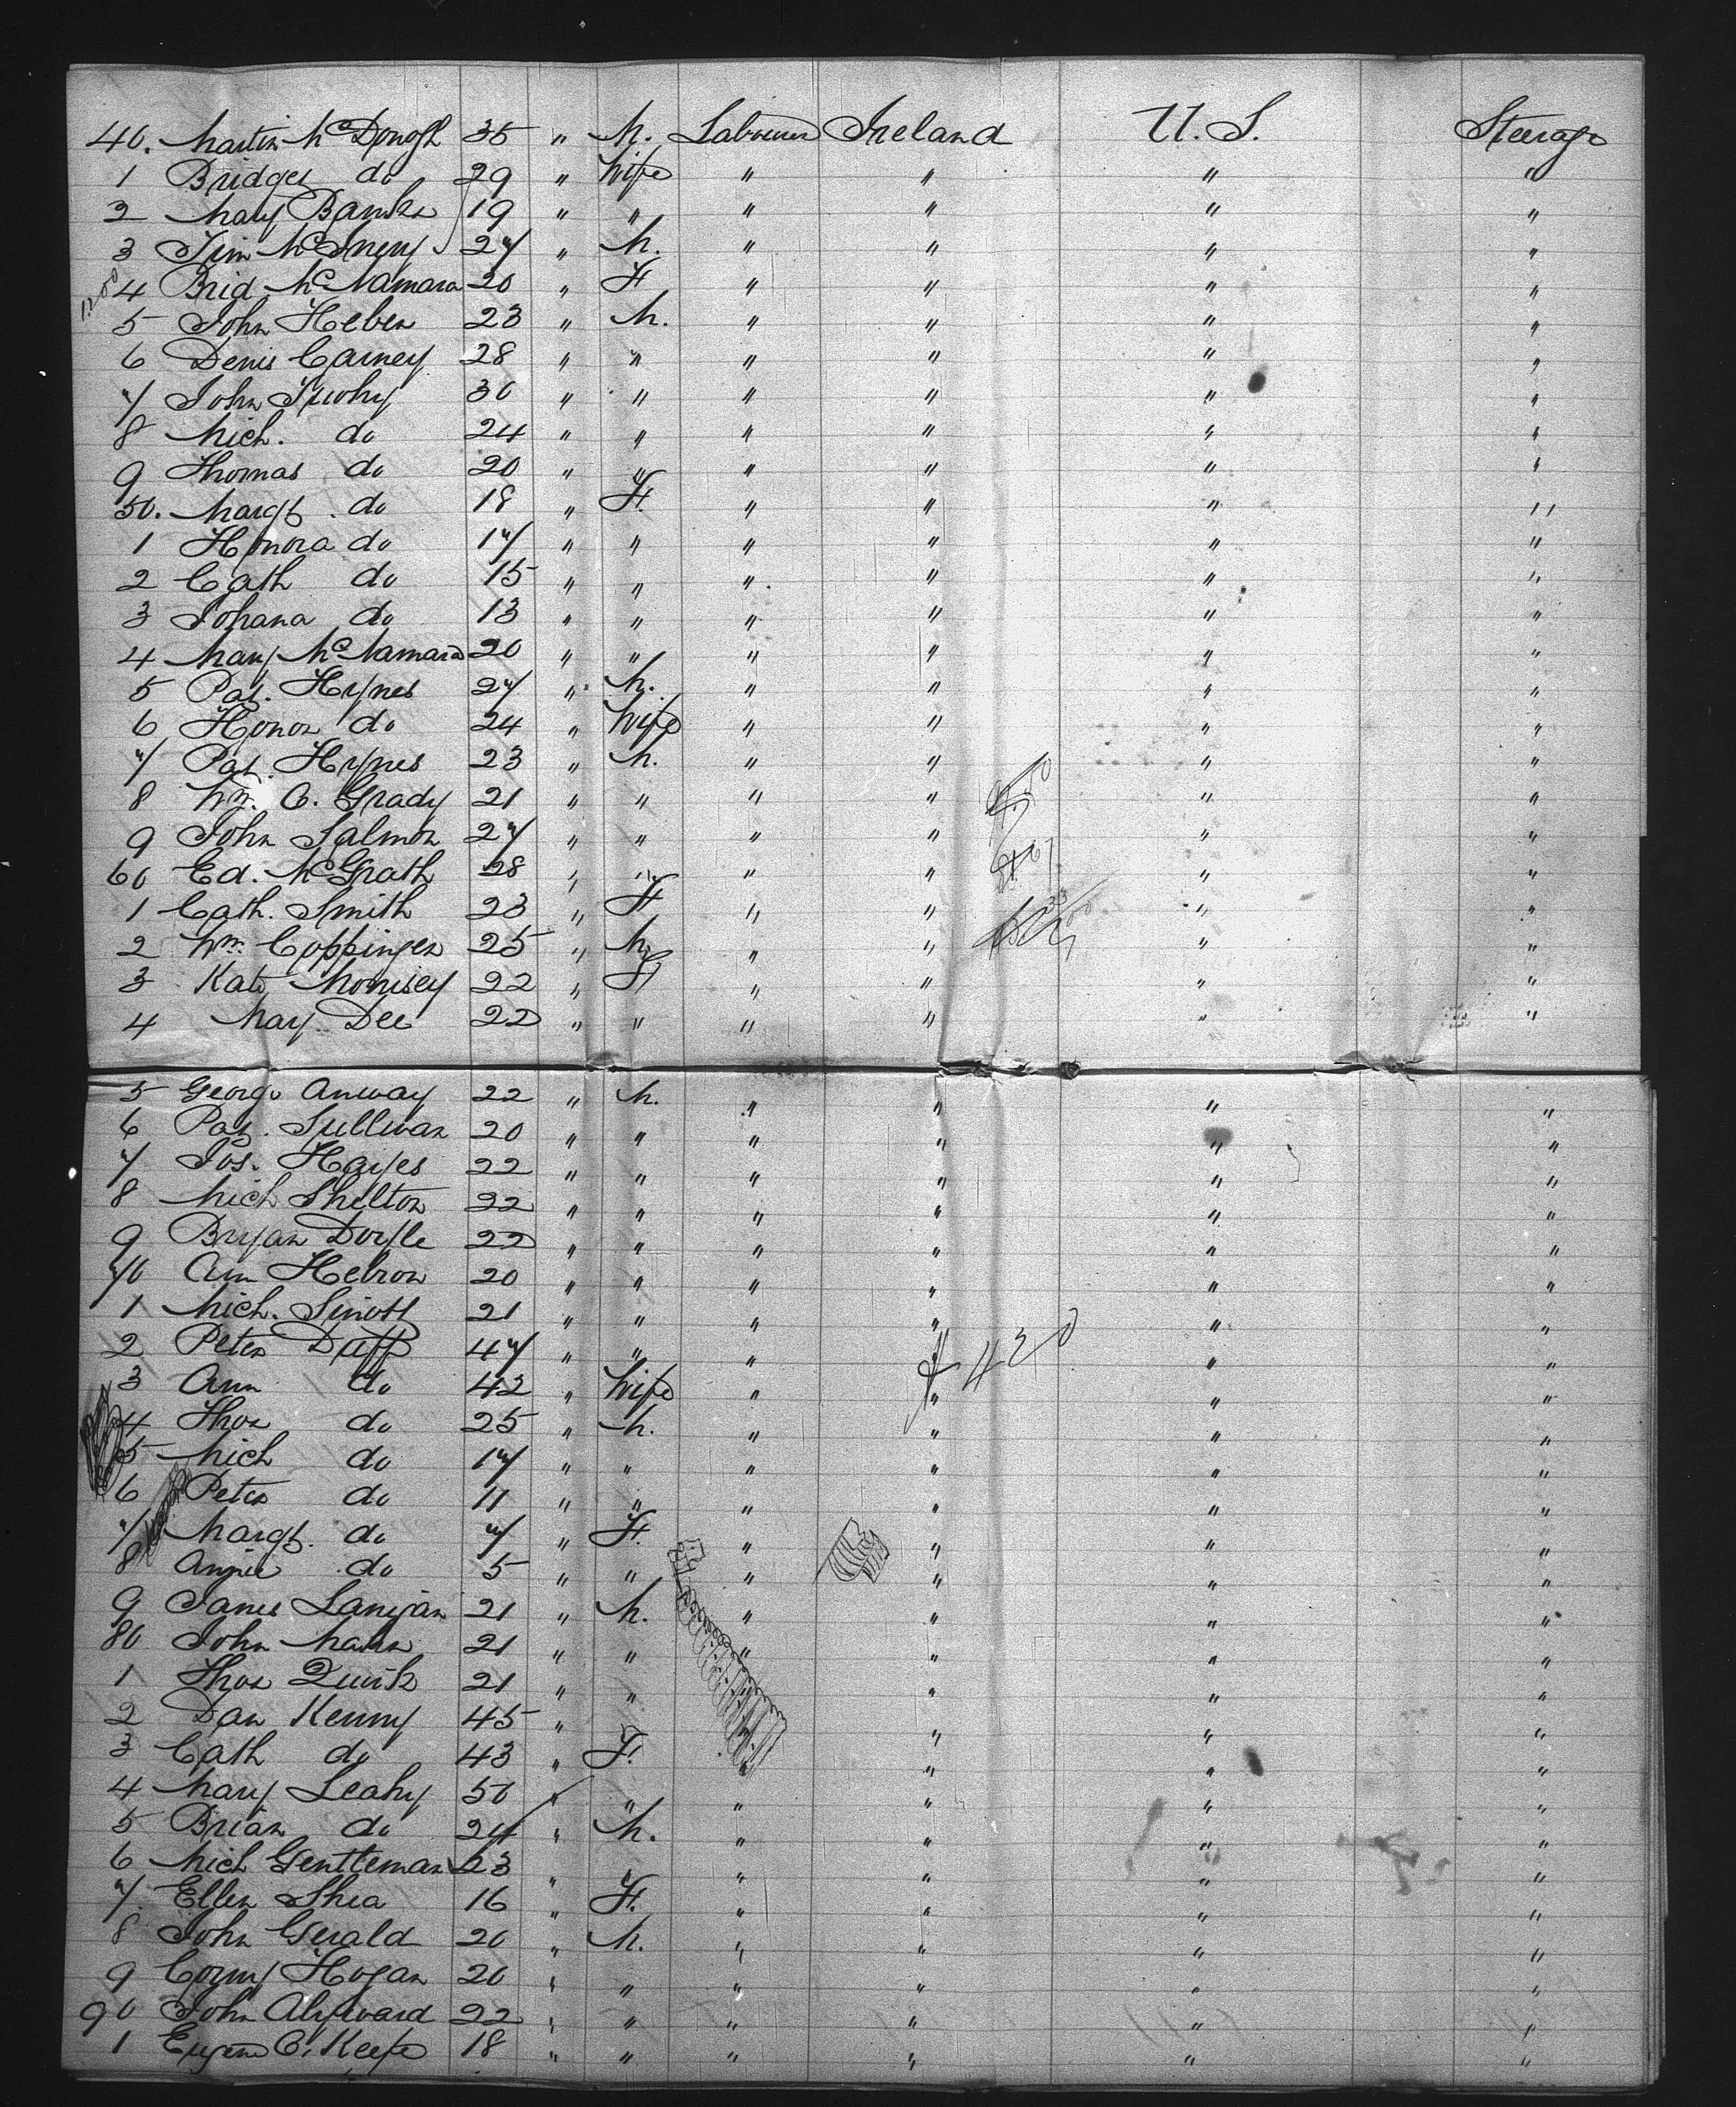 40. Martin McDonogh 35 " M. Labourer Ireland U. S. Steerage
1 Bridget do 29 " Wife " " " "
2 Mary Banks 19 " " " " " "
3 Tim McInery 27 " M. " " " "
4 Brid McNamara 20 " F " " " "
5 John Heben 23 " M. " " " "
6 Denis Carney 28 " " " " " "
7 John Tuohy 30 " " " " " "
8 Mich. do 24 " " " " " "
9 Thomas do 20 " " " " " "
50. Margt. do 18 " F. " " " "
1 Honora do 17 " " " " " "
2 Cath do 15 " " " " " "
3 Johana do 13 " " " " " "
4 Mary McNamara 20 " " " " " "
5 Pat. Hynes 27 " M. " " " "
6 Honor do 24 " Wife " " " "
7 Pat. Hynes 23 " M. " " " "
8 Wm. O. Grady 21 " " " " " "
9 John Salmon 27 " " " " " "
60 Ed. McGrath 28 " " " " " "
1 Cath. Smith 23 " F " " " "
2 Wm. Coppinger 25 " M " " " "
3 Kate Morrisey 22 " F " " " "
4 Mary Dee 22 " " " " " "
5 George Anway 22 " M. " " " "
6 Pat. Sullivan 20 " " " " " "
7 Jos. Hayes 22 " " " " " "
8 Mich Shelton 22 " " " " " "
9 Bryan Doyle 22 " " " " " "
70 Ann Hebron 20 " " " " " "
1 Mich. Sinott 21 " " " " " "
2 Peter Duff 47 " " " " " "
420
3 Ann do 42 " Wife " " " "
4 Thos do 25 " M. " " " "
5 Mich do 17 " " " " " "
6 Peter do 11 " " " " " "
7 Margt. do 7 " F. " " " "
8 Annie do 5 " " " " " "
9 James Lanigan 21 " M. " " " "
80 John Mara 21 " " " " " "
1 Thos Quirk 21 " " " " " "
2 Dan Kenny 45 " " " " "
3 Cath do 43 " F. " " " "
4 Mary Leahy 50 " " " " " "
5 Brian do 24 " M. " " " "
6 Mich Gentleman 23 " " " " "
7. Ellen Shea 16 " F. " " " "
8 John Gerald 20 " M. " " " "
9 Corny Hogan 20 " " " " " "
90 John Alyward 22 " " " " " "
1 Eugene O. Keefe 18 " " " " " "